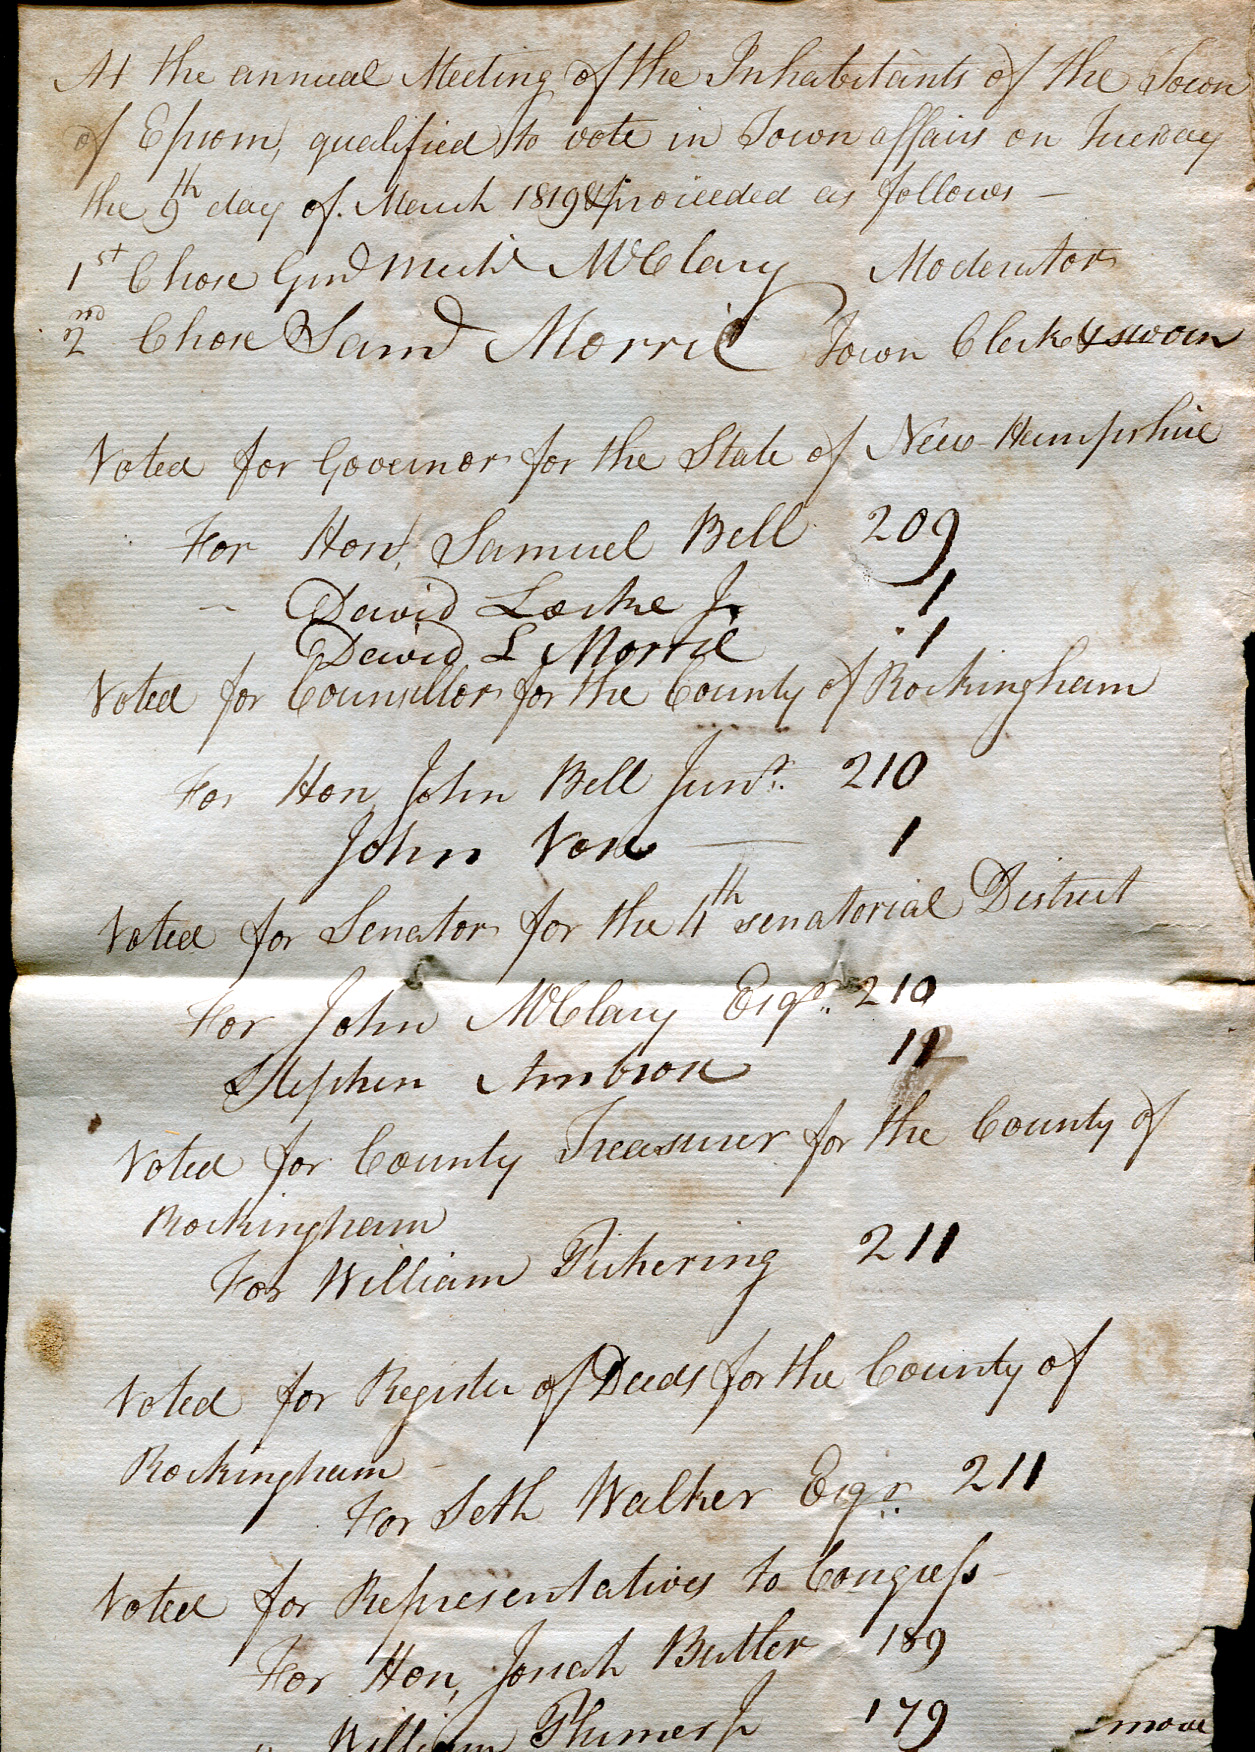 At the annual Meeting of the Inhabitants of the Town
of Epsom, qualified to vote in Town affairs on Tuesday
the 9th day of March 1819 & proceeded as follows —
1st Chose Genl Michl McClary Moderator
2nd Chose Saml Morril Town Clerk & sworn
Voted for Governor for the State of New-Hampshire
For Hon, Samuel Bell 209
David Locke Jr 1
David L Morril 1
Voted for Counsellor for the County of Rockingham
For Hon John Bell Junr. 210
John Vose — 1
Voted for Senator for the 4th senatorial District
For John McClary Esqr. 210
Stephen Ambrose
Voted for County Treasurer for the County of
Rockingham
For William Pickering 211
Voted for Register of Deeds for the County of
Rockingham
For Seth Walker Esqr. 211
Voted for Representatives to Congress
For Hon, Josiah Butler 189
" William Plumer Jr 179